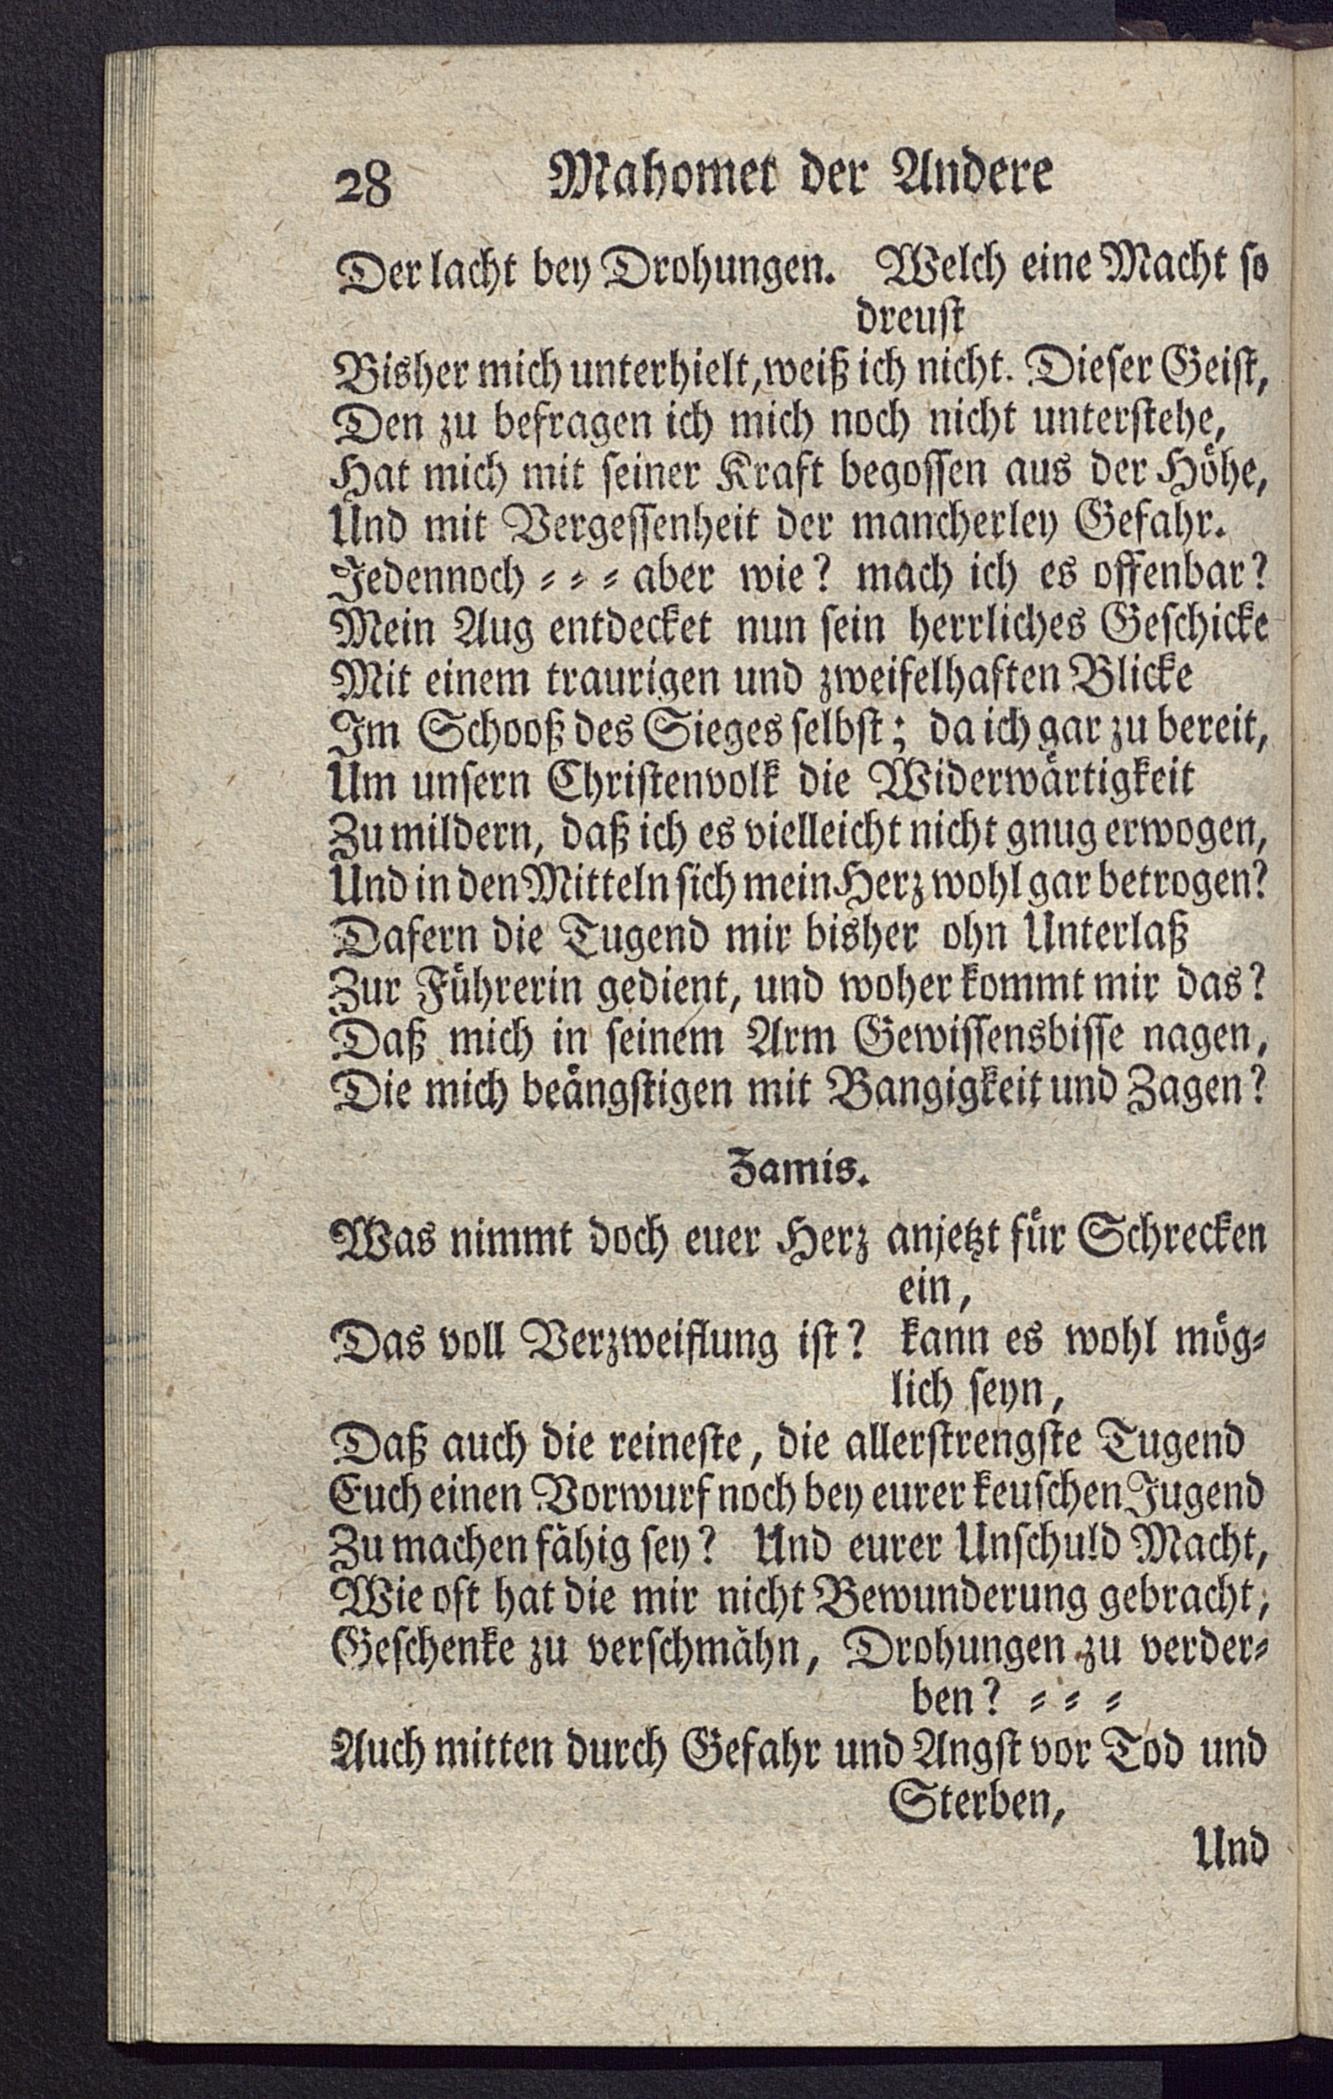 28 Mahomet der Andere
Der lacht bey Drohungen. Welch eine Macht so
dreust
Bisher mich unterhielt, weiß ich nicht. Dieser Geist,
Den zu befragen ich mich noch nicht unterstehe,
Hat mich mit seiner Kraft begossen aus der Höhe,
Und mit Vergessenheit der mancherley Gefahr.
Jedennoch = = = aber wie? mach ich es offenbar?
Mein Aug entdecket nun sein herrliches Geschicke
Mit einem traurigen und zweifelhaften Blicke
Im Schooß des Sieges selbst; da ich gar zu bereit,
Um unsern Christenvolk die Widerwärtigkeit
Zu mildern, daß ich es vielleicht nicht gnug erwogen,
Und in den Mitteln sich mein Herz wohl gar betrogen?
Dafern die Tugend mir bisher ohn Unterlaß
Zur Führerin gedient, und woher kommt mir das?
Daß mich in seinem Arm Gewissensbisse nagen,
Die mich beängstigen mit Bangigkeit und Zagen?
Zamis.
Was nimmt doch euer Herz anjetzt für Schrecken
ein,
Das voll Verzweiflung ist? kann es wohl mög=
lich seyn,
Daß auch die reineste, die allerstrengste Tugend
Euch einen Vorwurf noch bey eurer keuschen Jugend
Zu machen fähig sey? Und eurer Unschuld Macht,
Wie oft hat die mir nicht Bewunderung gebracht,
Geschenke zu verschmähn, Drohungen zu verder=
ben? = = =
Auch mitten durch Gefahr und Angst vor Tod und
Sterben,
Und